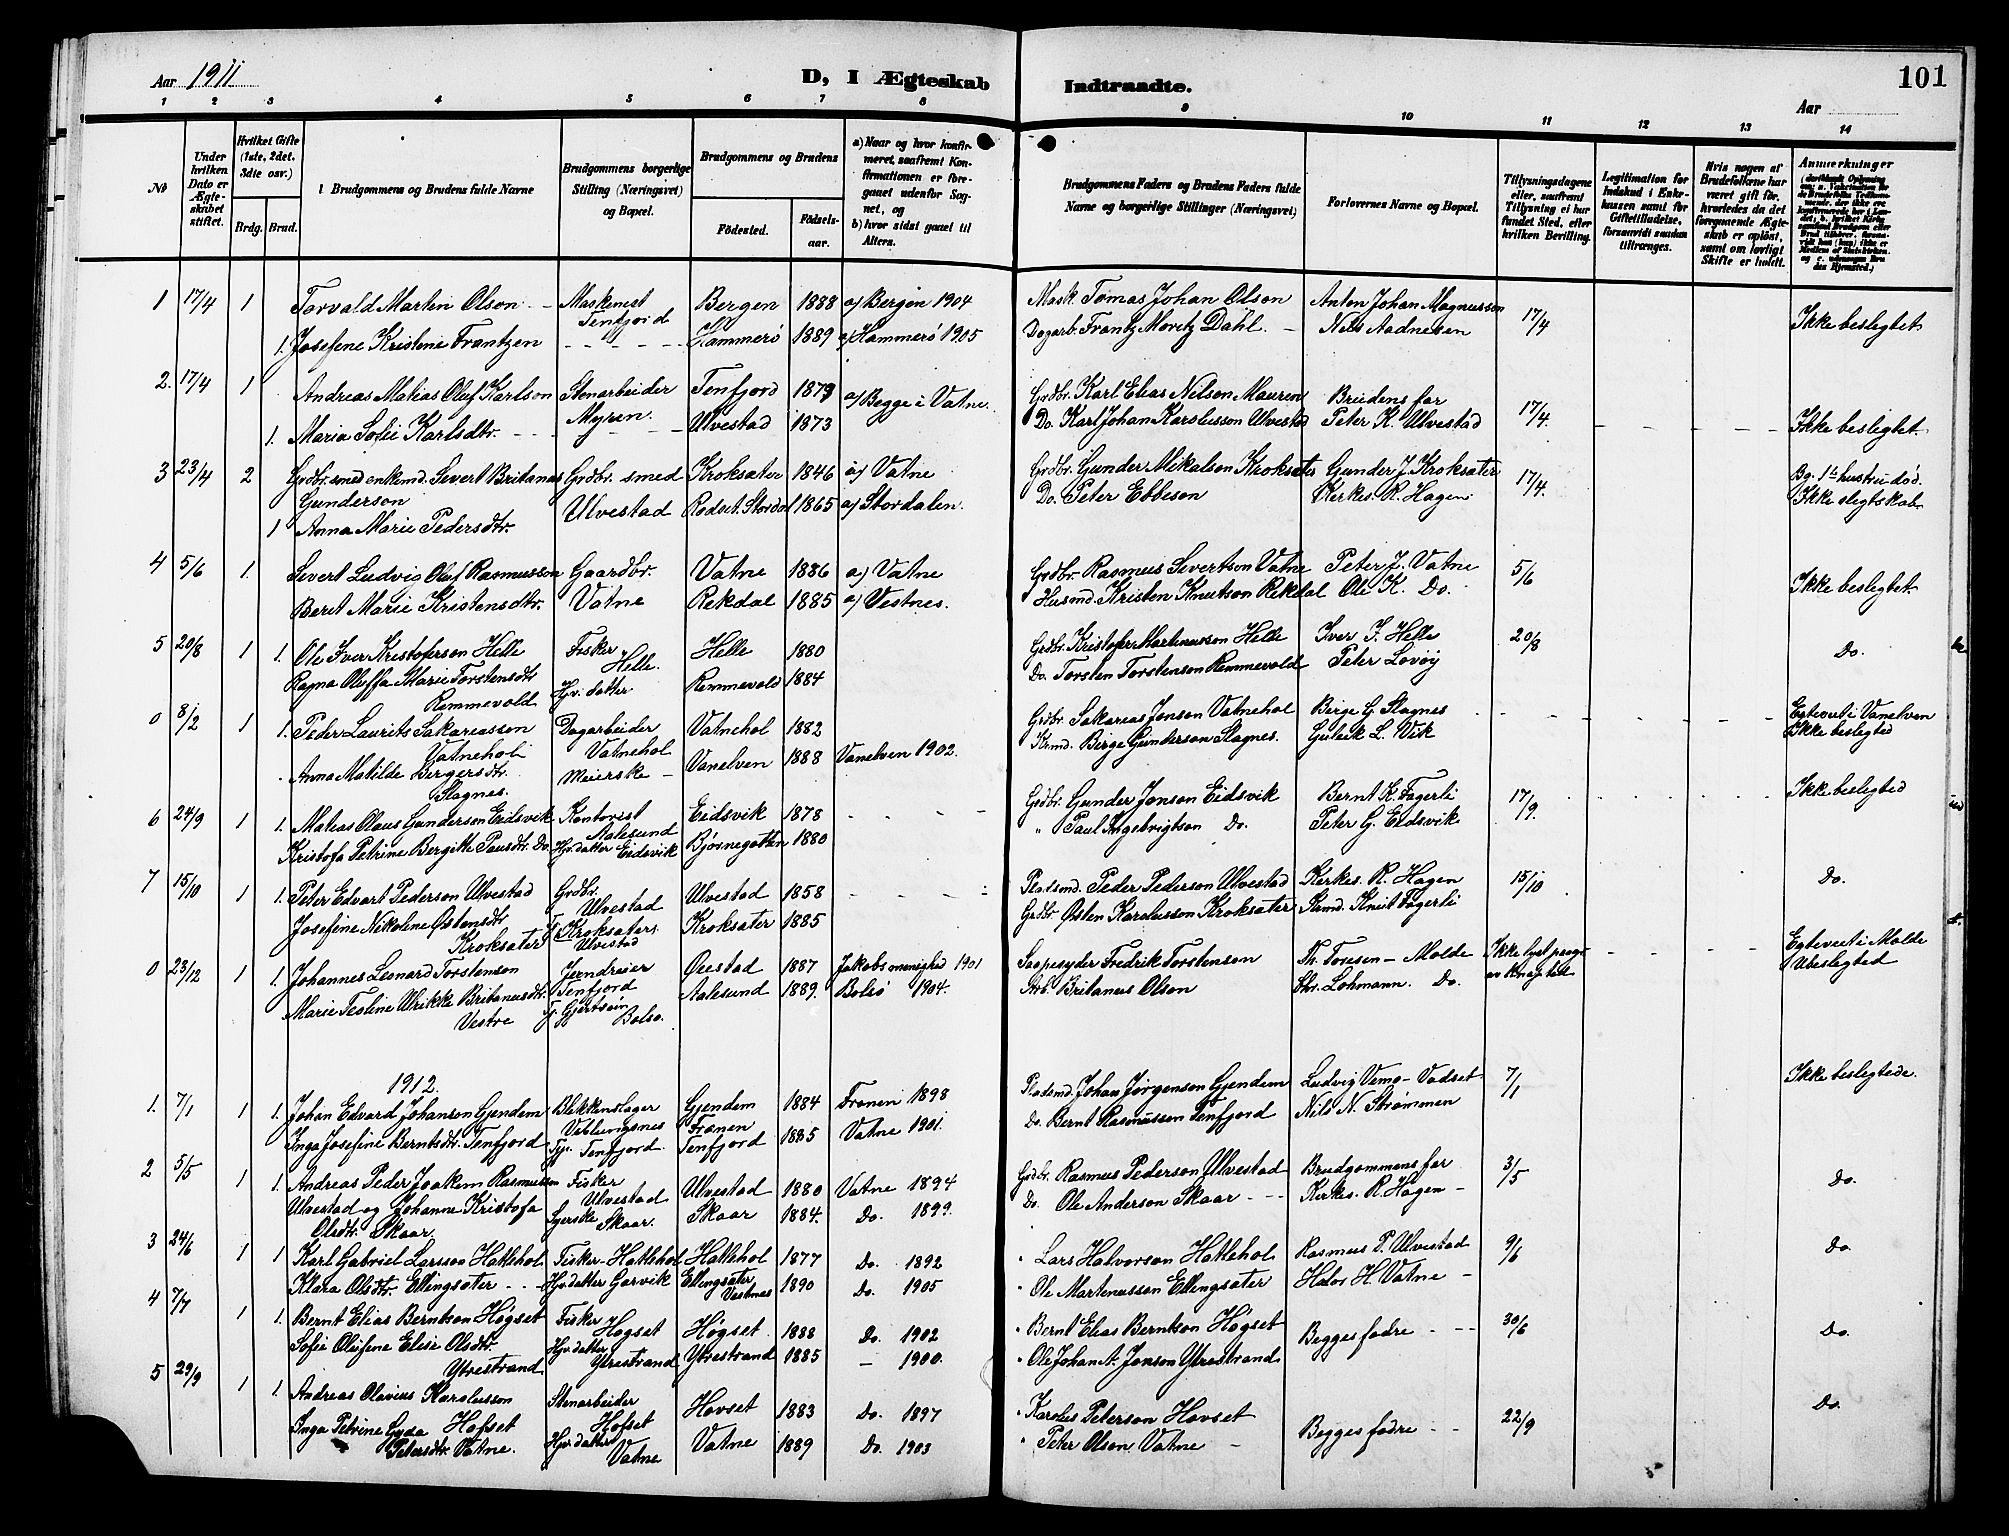 Aar 1911
D, I Ægteskab Indtraadte.
101
Aar
1 2 3 4 5 6 7 8 9 10 11 12 13 14
No
Under hvilken Dato er Ægteskabet stiftet.
Hvilket Gifte (1ste, 2det, 3die osv.)
Brdg. Brud.
Brudgommens og Brudens fulde Navne
Brudgommens borgerlige Stilling (Næringsvei) og Bopæl.
Brudgommens og Brudens
Fødested.
Fødselsaar.
a) Naar og hvor konfirmeret, saafremt Konfirmationen er foregaaet udenfor Sognet, og
b) hvor sidst gaaet til Alters.
Brudgommens Faders og Brudens Faders fulde Navne og borgerlige Stillinger (Næringsvei)
Forlovernes Navne og Bopæl.
Tillysningsdagene eller, saafremt Tillysning ei har fundet Sted, efter hvilken Bevilling.
Legitimation for Indskud i Enkekassen samt for Giftetilladelse, forsaavidt saadan tiltrænges.
Hvis nogen af Brudefolkene har været gift før, hvorledes da det foregaaende Ægteskab er opløst, samt om lovligt Skifte er holdt.
Anmærkninger
1 17/4 1 Torvald Martin Olson - Maskinist Bergen 1888 a) Bergen 1904 Mask. Tomas Johan Olson Anton Johan Magnusson 17/4 Ikke beslegtet
Tenfjord
1. Josefine Kristine Frantzen - - - - Hammerø 1889 a) Hammerø 1905 Dagarb. Frantz Moritz Dahl. - Nils Aadnesen
2. 17/4 1 Andreas Matias Oluf Karlson Stenarbeider Tenfjord 1879 a) Begge i Vatne. Grdbr. Karl Elias Nilson Mauren Brudens far 17/4. Ikke beslegtet.
1. Maria Sofie Karlsdtr. - - - Myren. - Ulvestad 1873 Do. Karl Johan Karolusson Ulvestad Peter K. Ulvestad
3 23/4 2 Grdbr. smed enkemd. Sivert Britanus Grdbr. smed Kroksæter 1846 a) Vatne Grdbr. Gunder Mikalson Kroksæter Gunder J. Kroksæter 17/4. Bg. 1ste hustru død.
Gunderson Ulvestad Rødset. Stordal 1865 a) Stordalen. Do. Peter Ebbeson Kirkes. R. Hagen. Ikke slegtskab
1 Anna Marie Pedersdtr.
4 5/6 1. Sivert Ludvig Oluf Rasmusson Gaardbr. Vatne 1886 a) Vatne Grdbr. Rasmus Sivertson Vatne Peter J. Vatne 5/6 Ikke beslegtet
Berit Marie Kristensdtr. Vatne Rekdal 1885 a) Vestnes. Husmd. Kristen Knutson Rekdal Ole K. Do.
5 20/8 1 1. Ole Iver Kristoferson Helle Fisker Helle 1880 Grdbr. Kristofer Martinusson Helle Iver I. Helle 20/8 Do.
Helle.
Ragna Oluffa Marie Torstensdtr Hjv. datter Remmevold 1884 Do. Torsten Torstenson Remmevold Peter Løvøy
Remmevold
0 8/2 1 1. Peter Laurits Sakariasson Dagarbeider Vatnehol 1882 Grdbr. Sakarias Jonson Vatnehol Birge G. Slagnes Egteviet i Vanelven
Vatnehol Vatnehol Ikke beslegted
Anna Matilde Bergersdtr. Meierske - Vanelven 1888 Vanelven 1902. Krmd. Birge Gunderson Slagnes. Guleik L. Vik
Slagnes.
6 24/9 1 1. Matias Olaus Gunderson Eidsvik Kontorist Eidsvik 1878 Grdbr. Gunder Jonson Eidsvik Bernt K. Fagerli 17/9 Ikke beslegted
Aalesund
Kristofa Petrine Bergitte Pausdtr. Do. Hjv. datter Eidsvik Bjørnegotten 1880 " Paul Ingebrigtson Do. Peter G. Eidsvik
7 15/10 1 1. Peter Edvart Pederson Ulvestad Grdbr. Ulvestad 1858 Pladsmd. Peder Pederson Ulvestad Kirkes. R. Hagen 15/10 Do.
Ulvestad
Josefine Nikoline Østensdtr Tj. Kroksæter Kroksæter 1885 Grdbr. Østen Karolusson Kroksæter Krmd. Knut Fagerli
Kroksæter Ulvestad
0 23/12 1 1. Johannes Leonard Torstenson Jerndreier Ørestad 1887 Jakobs menighed 1901 Saapesyder Fredrik Torstenson Th. Toresen - Molde Ikke lyst Egteviet i Molde
Tenfjord Ubeslegted
Marie Tesline Ulrikke Britanusdtr. Aalesund 1889. Bolsø 1904. Arb. Britanus Olson Chr. Lohmann. Do.
Vestre Bolsø.
1912.
1. 7/1 1 1. Johan Edvard Johanson Gjendem Blikkenslager Gjendem 1884 Frænen 1898 Pladsmd. Johan Jørgenson Gjendem Ludvig Vemo - Vadset 7/1 Ikke beslegtede.
Veblungsnes Frænen
Inga Josefine Berntsdtr. Tenfjord Tjp. Tenfjord. Tenfjord 1885 Vatne 1901. Do. Bernt Rasmusson Tenfjord Nils N. Strømmen
2 5/5 1 1. Andreas Peder Joakim Rasmusson Fisker Ulvestad 1880 Vatne 1894 Grdbr. Rasmus Pederson Ulvestad Brudgommens far 3/5 Do.
Ulvestad og Johanne Kristofa Ulvestad
Olsdtr. Skaar. Syerske Skaar. Skaar 1884. Do. 1899. Do. Ole Anderson Skaar - - - Kirkes. R. Hagen -
3 24/6 1 1 Karl Gabriel Larsson Hatlehol Fisker Hatlehol Hatlehol 1877 Do. 1892 " Lars Halvorson Hatlehol Rasmus P. Ulvestad 9/6 Do
Klara Olsdtr. Ellingsæter - - Hjv. datter Gjørvik Ellingsæter Vestnes 1890 Do. 1905 " Ole Martinusson Ellingsæter Halvor H. Vatne -
4 7/7 1 1. Bernt Elias Berntson Høgset Fisker Høgset 1888 Do. 1902 " Bernt Elias Berntson Høgset Begges fædre - - - 30/6 Do.
Høgset
Sofie Olufine Elise Olsdtr. Hjv. datter Ytrestrand 1885 - 1900. " Ole Johan A. Jonson Ytrestrand
Ytrestrand Ytrestrand
5 29/9 1 1. Andreas Olavius Karolusson Stenarbeider Hovset 1883 Do. 1897 " Karolus Peterson Hovset Begges fædre - - 22/9 Do.
Hofset Hofset
Inga Petrine Gyda Hjv. datter Vatne 1889 Do. 1903 " Peter Olson Vatne -
Petersdtr. Vatne. Vatne